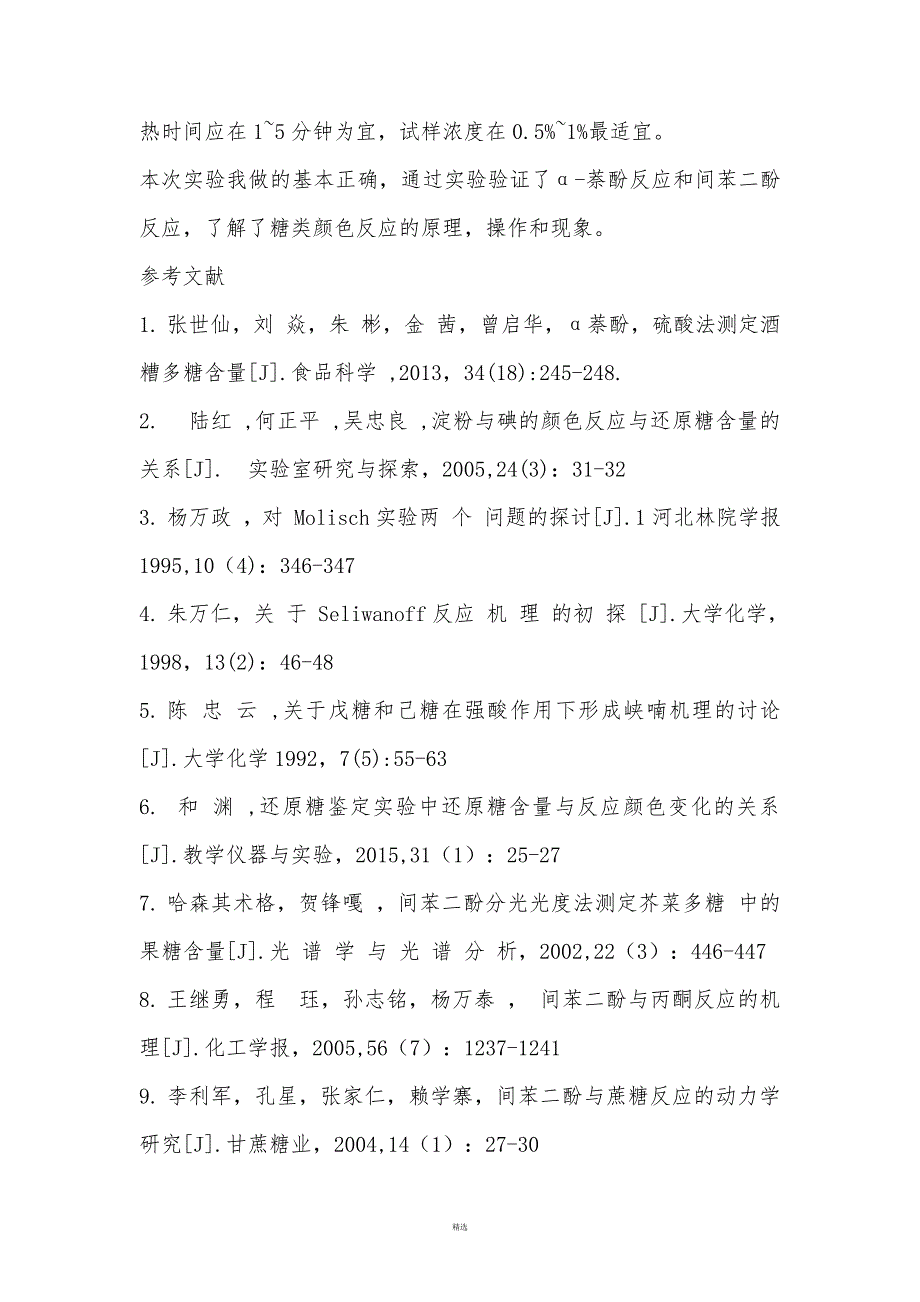 热时间应在1~5分钟为宜，试样浓度在0.5%~1%最适宜。
本次实验我做的基本正确，通过实验验证了α-萘酚反应和间苯二酚
反应，了解了糖类颜色反应的原理，操作和现象。
参考文献
1. 张世仙，刘 焱，朱 彬，金 茜，曾启华，α萘酚，硫酸法测定酒
糟多糖含量[J].食品科学 ,2013，34(18):245-248.
2.  陆红 ,何正平 ,吴忠良 ,淀粉与碘的颜色反应与还原糖含量的
关系[J].  实验室研究与探索，2005,24(3)：31-32
3. 杨万政 ，对 Molisch实验两 个 问题的探讨[J].1河北林院学报
1995,10（4)：346-347
4. 朱万仁，关 于 Seliwanoff反应 机 理 的初 探 [J].大学化学，
1998，13(2)：46-48
5. 陈 忠 云 ,关于戊糖和己糖在强酸作用下形成峡喃机理的讨论
[J].大学化学1992，7(5):55-63
6.  和 渊 ,还原糖鉴定实验中还原糖含量与反应颜色变化的关系
[J].教学仪器与实验，2015,31（1）：25-27
7. 哈森其术格，贺锋嘎 ，间苯二酚分光光度法测定芥菜多糖 中的
果糖含量[J].光 谱 学 与 光 谱 分 析，2002,22（3）：446-447
8. 王继勇，程  珏，孙志铭，杨万泰 ， 间苯二酚与丙酮反应的机
理[J].化工学报，2005,56（7）：1237-1241
9. 李利军，孔星，张家仁，赖学寨，间苯二酚与蔗糖反应的动力学
研究[J].甘蔗糖业，2004,14（1）：27-30
精选